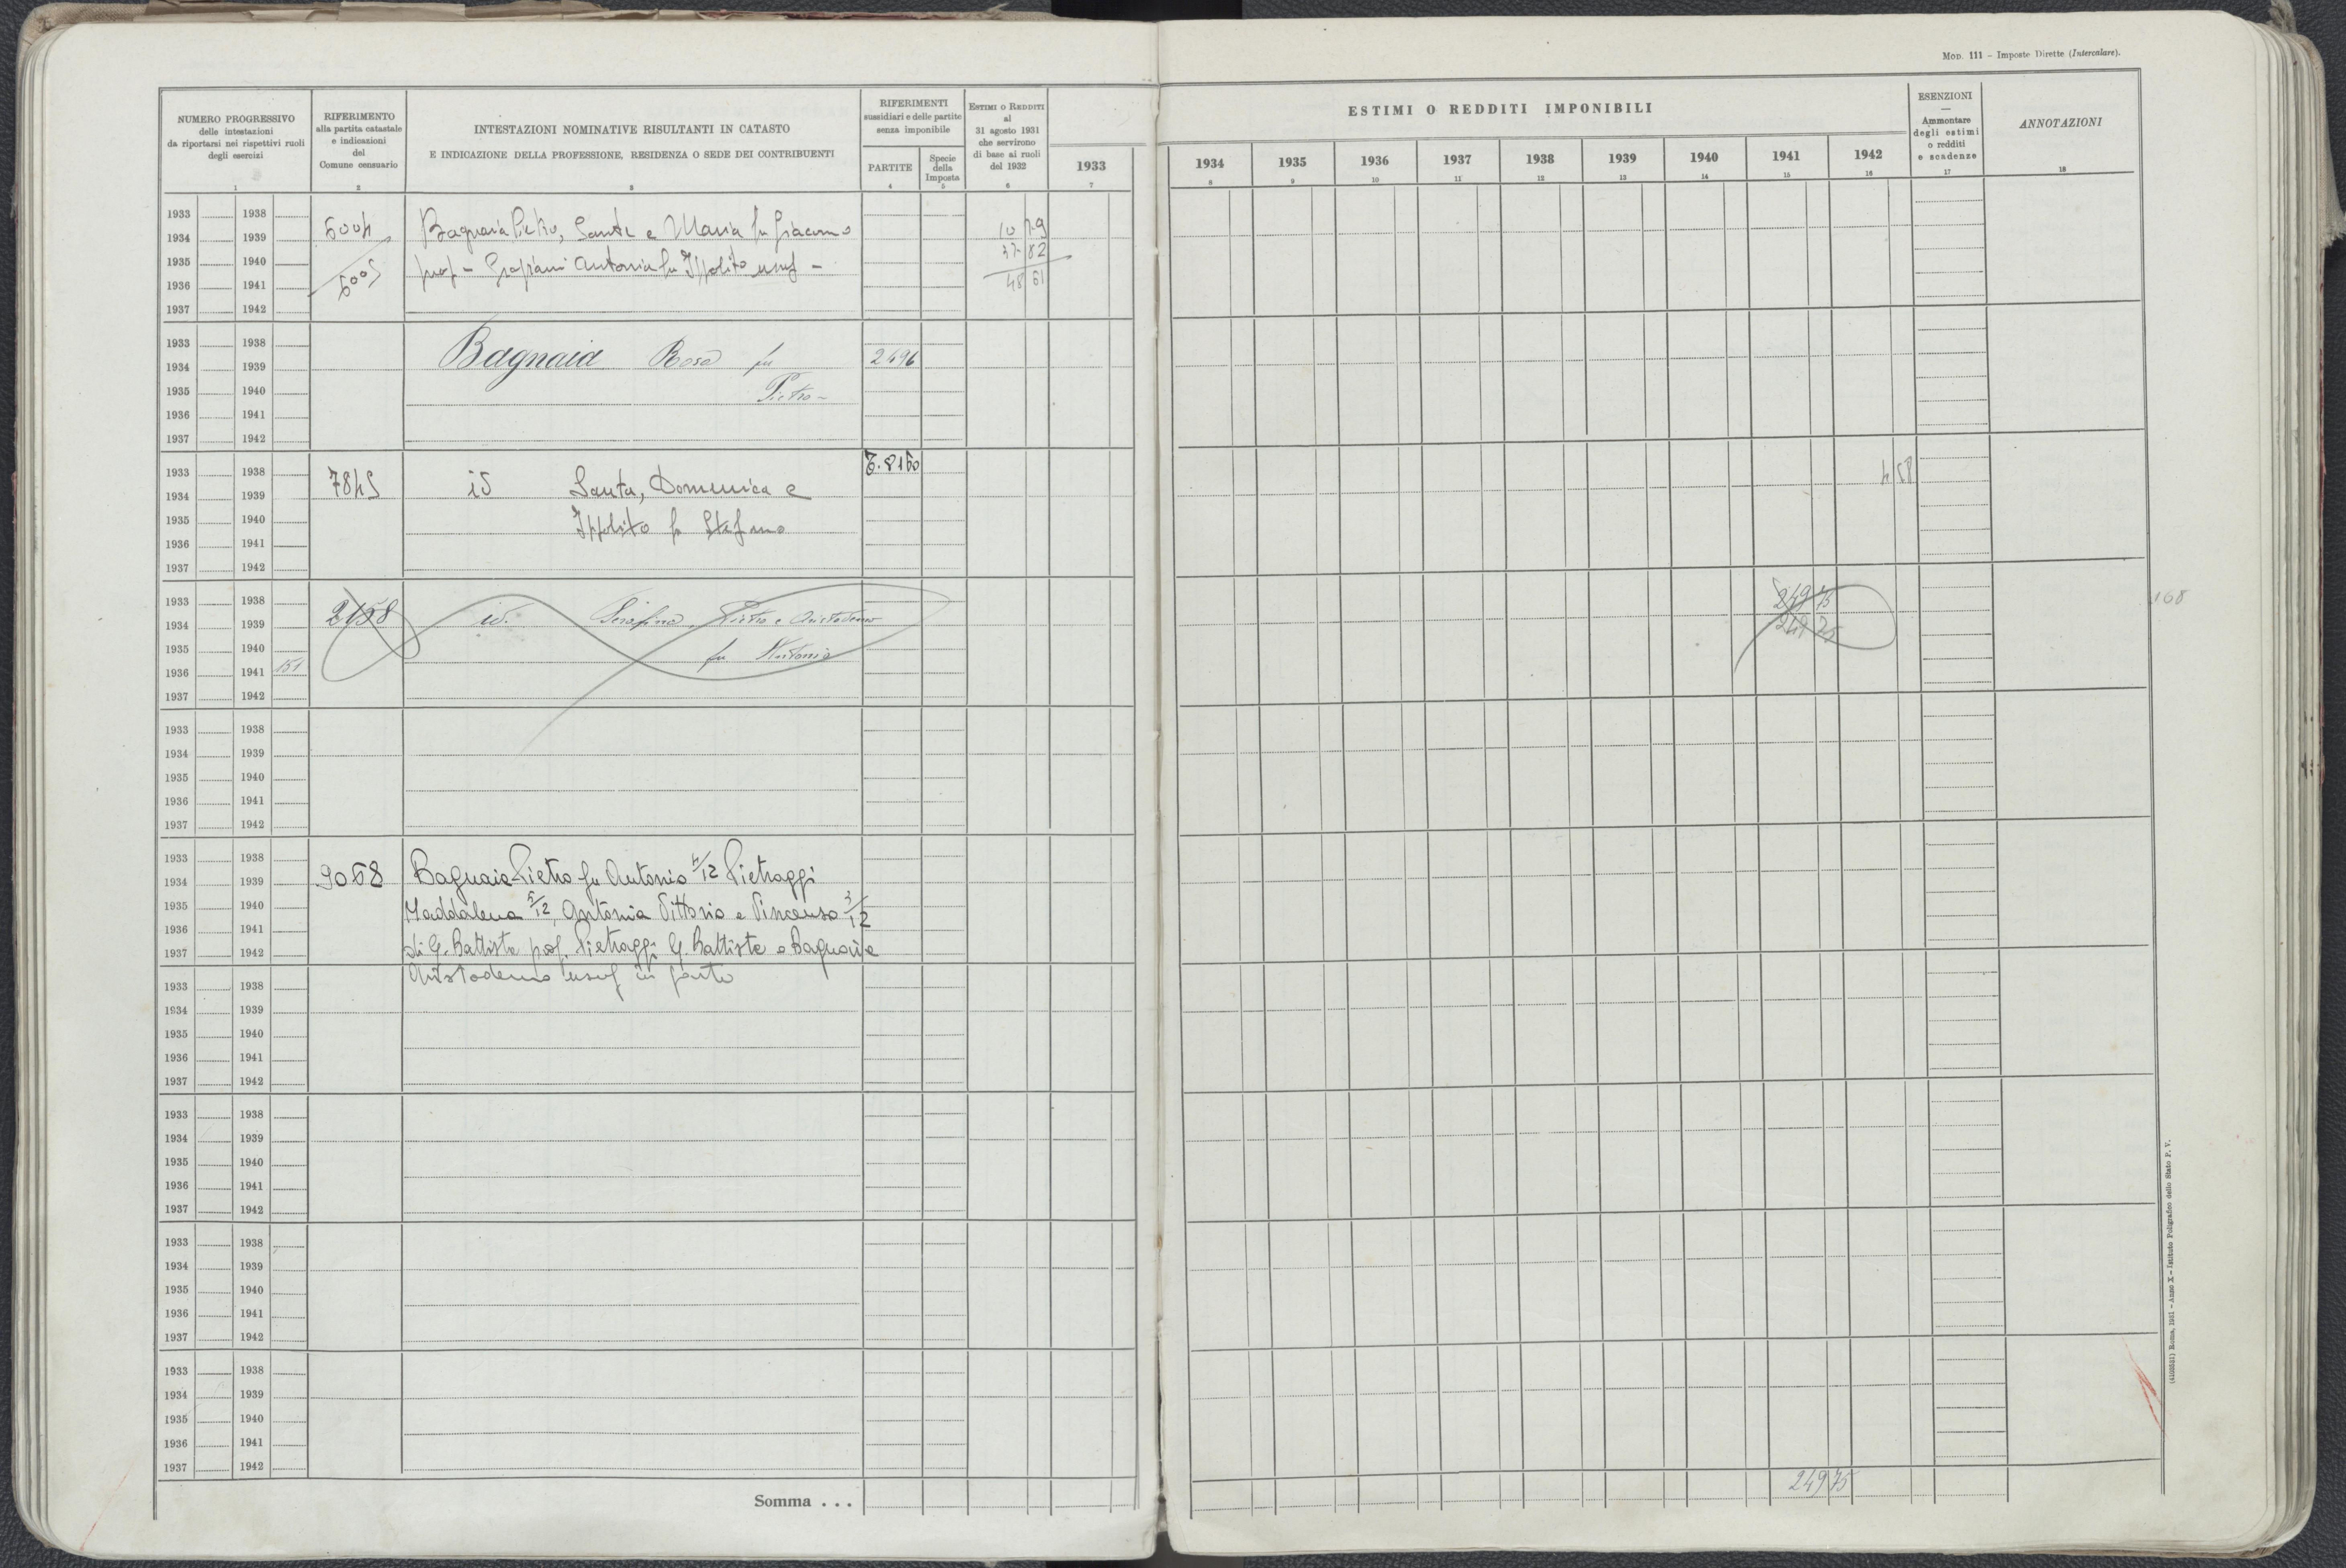 Mod. 111 - Imposte Dirette (Intercalare).
NUMERO PROGRESSIVO
delle intestazioni
da riportarsi nei rispettivi ruoli
degli esercizi
1
RIFERIMENTO
alla partita catastale
e indicazioni
del
Comune censuario
2
INTESTAZIONI NOMINATIVE RISULTANTI IN CATASTO
E INDICAZIONE DELLA PROFESSIONE, RESIDENZA O SEDE DEI CONTRIBUENTI
3
RIFERIMENTI
sussidiari e delle partite
senza imponibile
PARTITE
4
Specie
della
Imposta
5
ESTIMI O REDDITI
al
31 agosto 1931
che servirono
di base ai ruoli
del 1932
6
ESTIMI O REDDITI IMPONIBILI
1933 1934 1935 1936 1937 1938 1939 1940 1941 1942
7 8 9 10 11 12 13 14 15 16
ESENZIONI
—
Ammontare
degli estimi
o redditi
e scadenze
17
ANNOTAZIONI
18
1933 1938
1934 1939 6004 Bagnaia Pietro, Sante e Maria fu Giacomo 10 79
1935 1940 prop - Graziani Antonia fu Ippolito usuf - 37 82
1936 1941 6005 48 61
1937 1942
1933 1938
1934 1939 Bagnaia Rosa fu 2496
1935 1940 Pietro -
1936 1941
1937 1942
1933 1938 T. 8160
1934 1939 7845 id Santa, Domenica e 4 58
1935 1940 Ippolito fu Stefano
1936 1941
1937 1942
1933 1938 249 75
1934 1939 2158 id. Serafina, Pietro e Aristodemo 249 75
1935 1940 fu Antonio
1936 1941 151
1937 1942
168
1933 1938
1934 1939
1935 1940
1936 1941
1937 1942
1933 1938
1934 1939 9068 Bagnaia Pietro fu Antonio 4/12 Pietraggi
1935 1940 Maddalena 5/12, Antonia Vittorio e Vincenso 3/12
1936 1941
1937 1942 di G. Battista prop. Pietraggi G. Battista e Bagnaia
Aristodemo usuf in parte
1933 1938
1934 1939
1935 1940
1936 1941
1937 1942
1933 1938
1934 1939
1935 1940
1936 1941
1937 1942
1933 1938
1934 1939
1935 1940
1936 1941
1937 1942
1933 1938
1934 1939
1935 1940
1936 1941
1937 1942
Somma . . . 249 75
(4103531) Roma, 1931 - Anno X - Istituto Poligrafico dello Stato P. V.